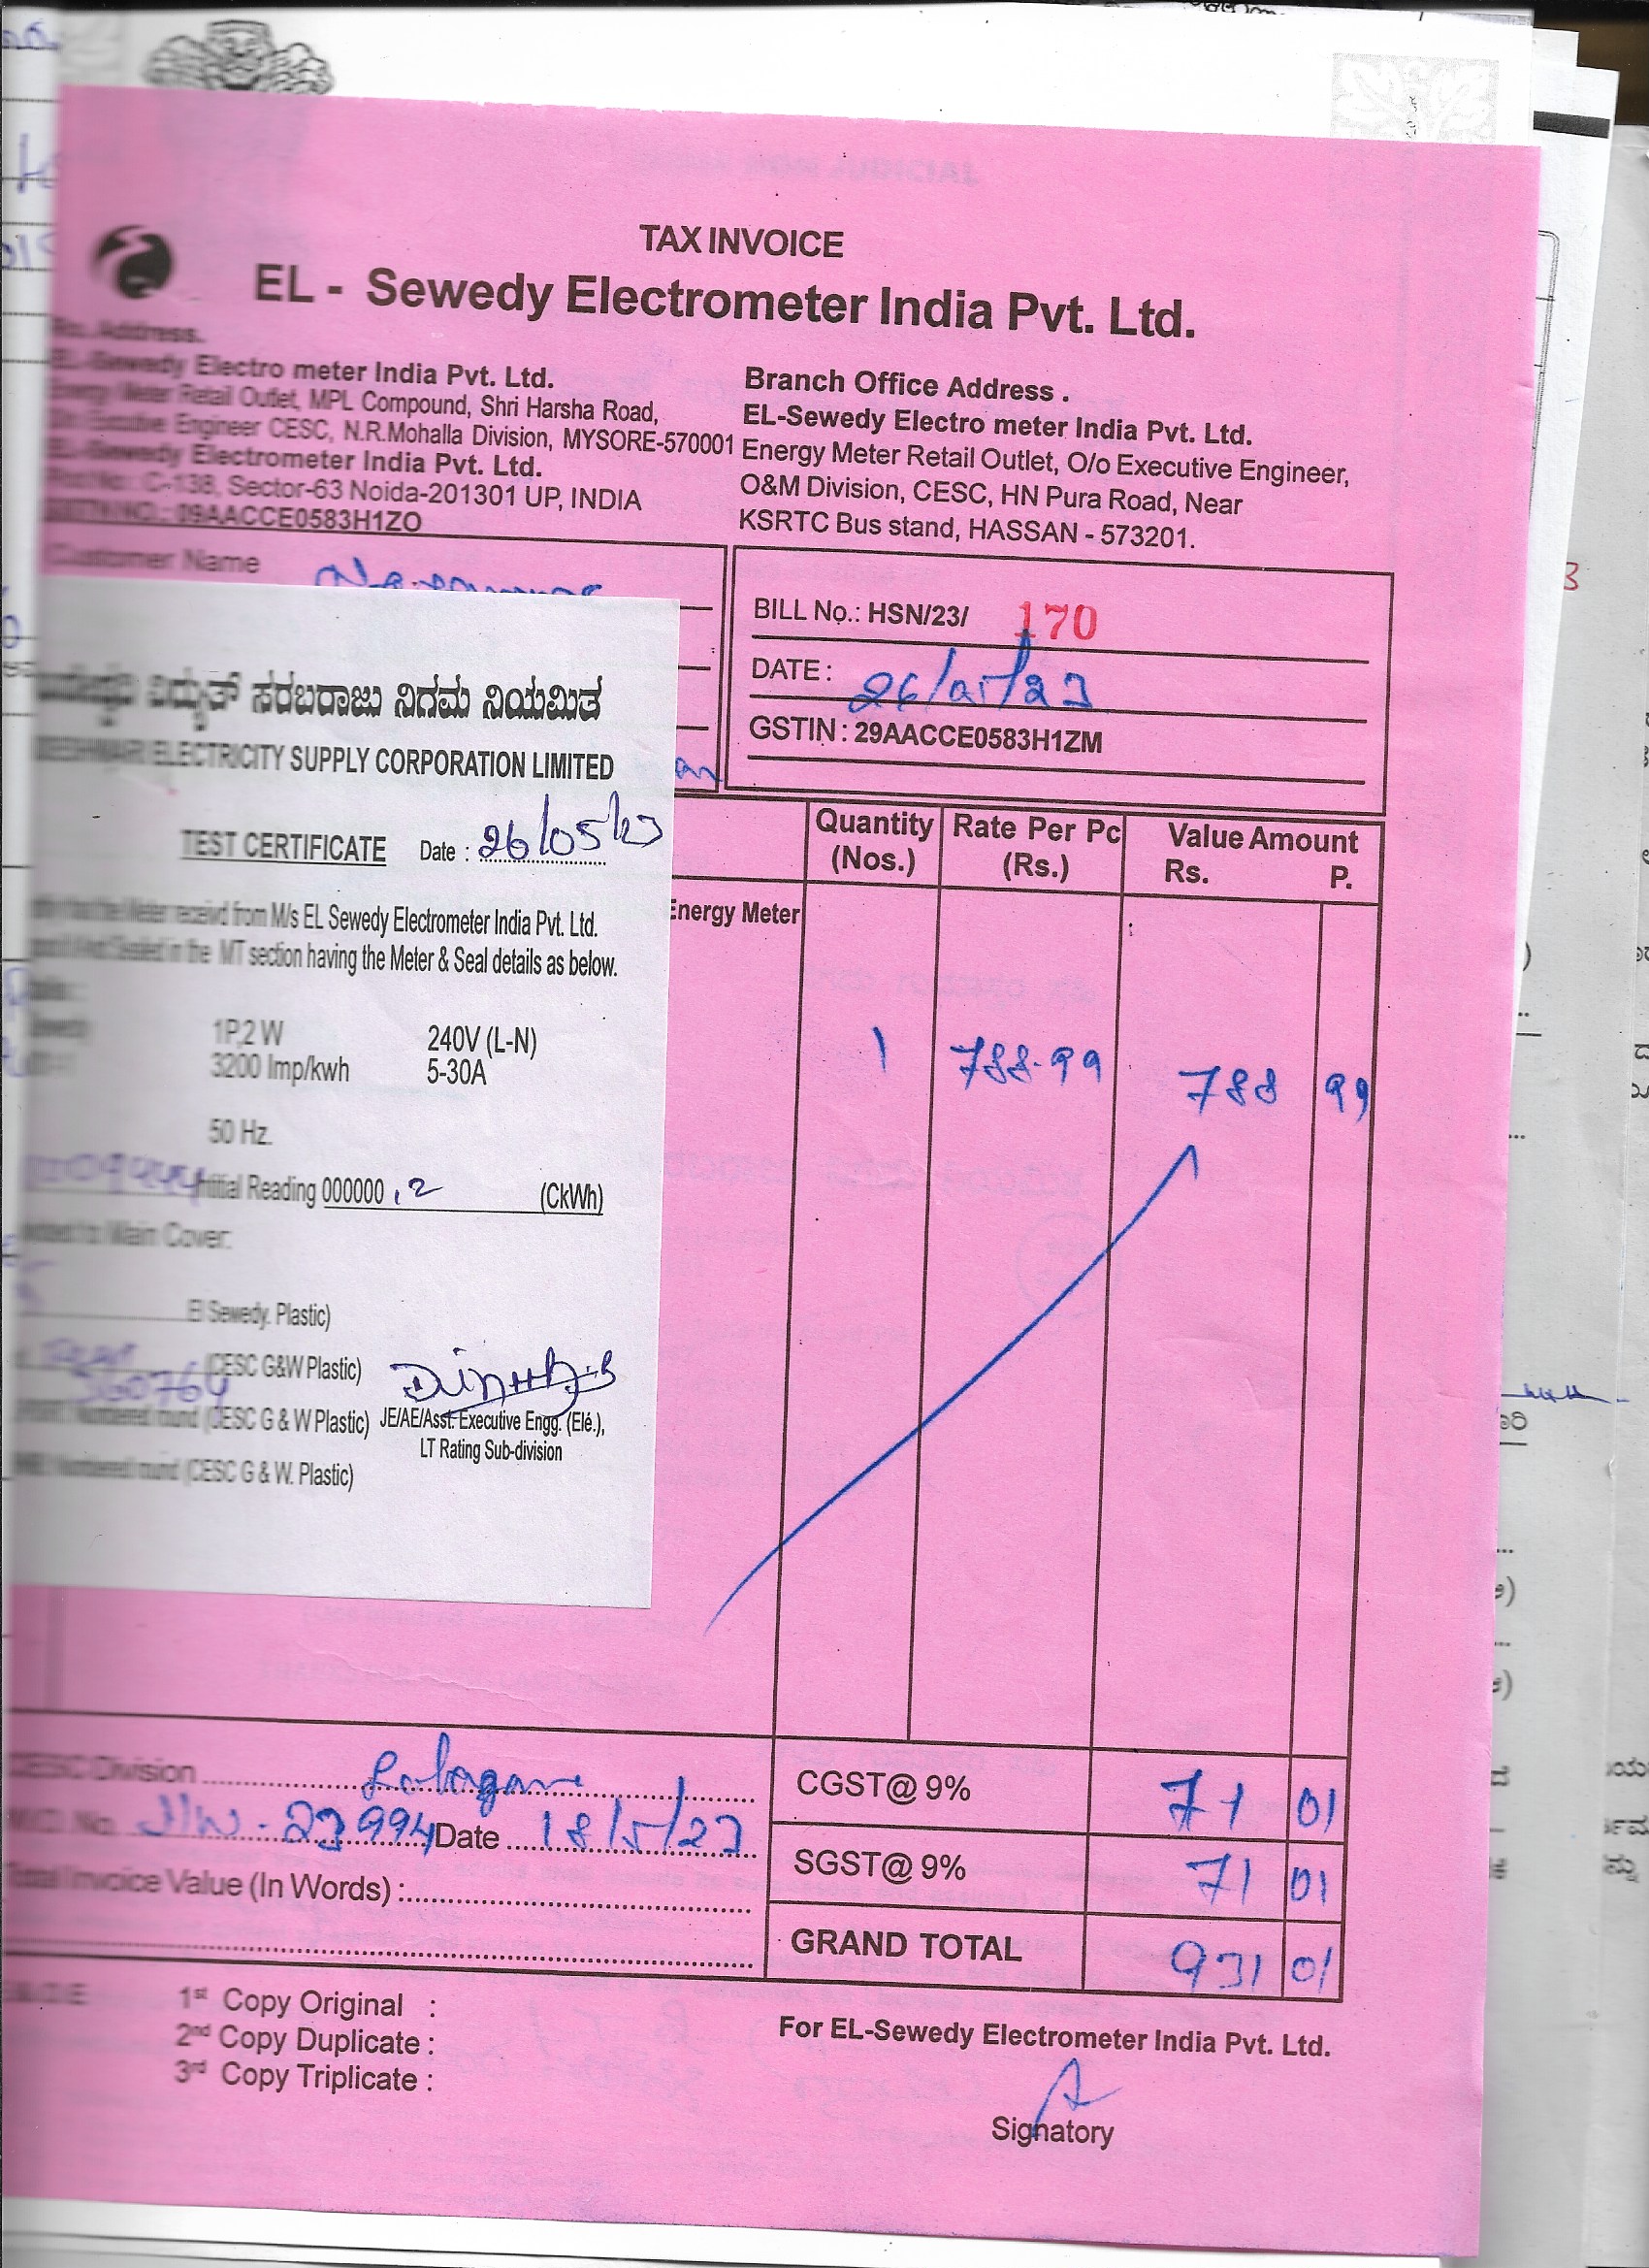 TAX INVOICE
EL - Sewedy Electrometer India Pvt. Ltd.
Address.
EL-Sewedy Electro meter India Pvt. Ltd.
Energy Meter Retail Outlet, MPL Compound, Shri Harsha Road,
Engineer CESC, N.R.Mohalla Division, MYSORE-570001
EL-Sewedy Electrometer India Pvt. Ltd.
C-138, Sector-63 Noida-201301 UP, INDIA
09AACCE0583H1ZO
Branch Office Address .
EL-Sewedy Electro meter India Pvt. Ltd.
Energy Meter Retail Outlet, O/o Executive Engineer,
O&M Division, CESC, HN Pura Road, Near
KSRTC Bus stand, HASSAN - 573201.
Customer Name
BILL No.: HSN/23/ 170
DATE : 26/05/23
GSTIN : 29AACCE0583H1ZM
ವಿದ್ಯುತ್ ಸರಬರಾಜು ನಿಗಮ ನಿಯಮಿತ
ELECTRICITY SUPPLY CORPORATION LIMITED
TEST CERTIFICATE Date : 26/05/23
the Meter receivd from M/s EL Sewedy Electrometer India Pvt. Ltd.
Sealed in the MT section having the Meter & Seal details as below.
Sewedy 1P,2 W 240V (L-N)
3200 Imp/kwh 5-30A
50 Hz.
Initial Reading 000000 .2 (CkWh)
to Main Cover:
El Sewedy. Plastic)
(CESC G&W Plastic)
560764
Numbered round (CESC G & W Plastic) JE/AE/Asst. Executive Engg. (Elé.),
LT Rating Sub-division
Numbered round (CESC G & W. Plastic)
Quantity (Nos.) Rate Per Pc (Rs.) Value Amount Rs. P.
Energy Meter
1 788-99 788 99
CESC Division
23994 Date 18/5/23
Total Invoice Value (In Words) :
CGST@ 9% 71 01
SGST@ 9% 71 01
GRAND TOTAL 931 01
1st Copy Original :
2nd Copy Duplicate :
3rd Copy Triplicate :
For EL-Sewedy Electrometer India Pvt. Ltd.
Signatory